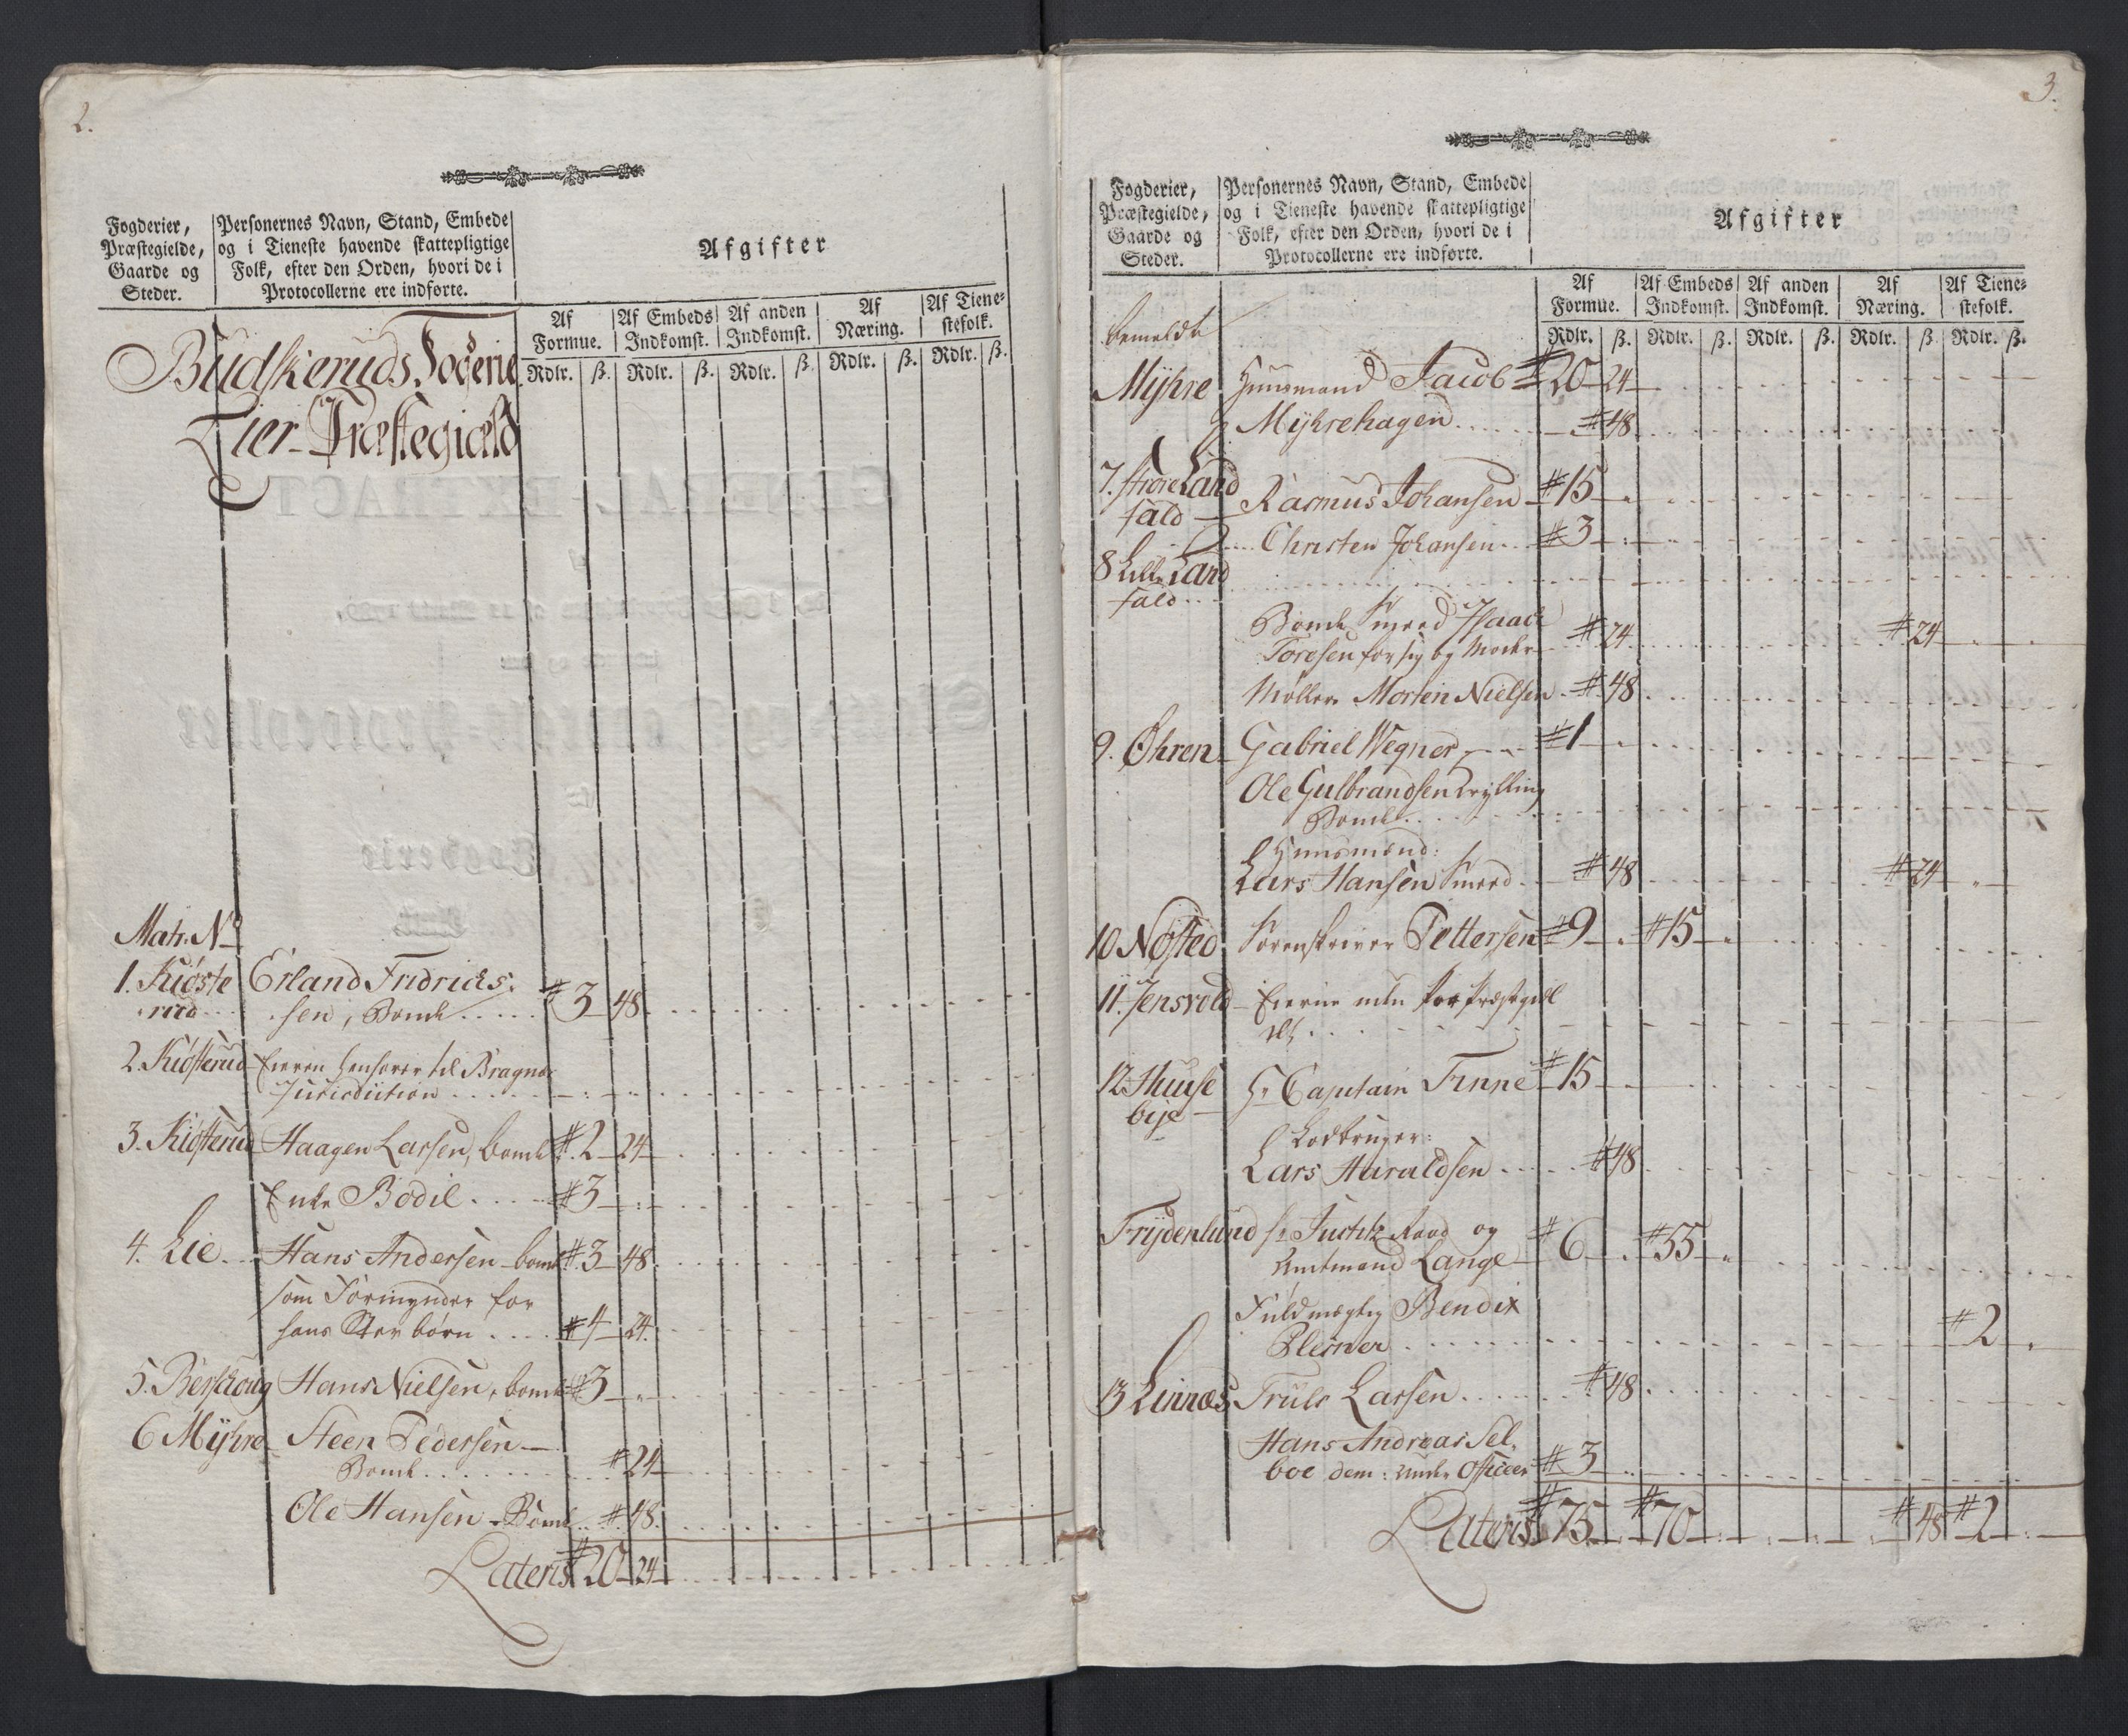 2.
Fogderier, Præstegielde, Gaarde og Steder.
Personernes Navn, Stand, Embede og i Tieneste havende skattepligtige Folk, efter den Orden, hvori de i Protocollerne ere indførte.
Afgifter
Af Formue. Af Embeds Indkomst. Af anden Indkomst. Af Næring. Af Tienestefolk.
Rdlr. ß. Rdlr. ß. Rdlr. ß. Rdlr. ß. Rdlr. ß.
Budskeruds Fogderie
Lier Præstegield
Matr. No
1. Kiøste Erland Fridrichs:
rud sen, Bonde # 3 48
2. Kiøsterud Eieren henhører til Bragnæs
Jurisdiction
3. Kiøsterud Haagen Larsen, bonde # 2 24
Enke Bodil # 3
4. Lie Hans Andersen bonde # 3 48
som Formynder for
hans Sterbørn # 4 24
5. Berskoug Hans Nielsen, bonde # 3
6 Myhre Steen Pedersen
Bonde # 24
Ole Hansen Bonde # 48
Lateris # 20 24
3.
Fogderier, Præstegielde, Gaarde og Steder.
Personernes Navn, Stand, Embede og i Tieneste havende skattepligtige Folk, efter den Orden, hvori de i Protocollerne ere indførte.
Afgifter
Af Formue. Af Embeds Indkomst. Af anden Indkomst. Af Næring. Af Tienestefolk.
Rdlr. ß. Rdlr. ß. Rdlr. ß. Rdlr. ß. Rdlr. ß.
bemeldte # 20 24
Myhre Huusmand Jacob
Myhrehagen # 48
7. Store Land
fald Rasmus Johansen # 15
Christen Johansen # 3
8 Lille Land
fald
Bonde Smed Isaach
Toresen for sig og Moder # 24 # 24
Møller Morten Nielsen # 48
9. Øhren Gabriel Wegner # 1
Ole Gulbrandsen
Bonde
Huusmænd:
Lars Hansen Smed # 48 # 24
10 Nøsted Sorenskriver Pettersen # 9 # 15
11. Jensvold Eierne uden for Præstegiel
det
12. Huuse
bye Hr Capitain Finne # 15
Lodbruger:
Lars Haraldsen # 48
Frydenlund Hr Justitz Raad og
Amtmand Lange # 6 # 55
Fuldmægtig Bendix
Plesner # 2
13 Linnæs Truls Larsen # 48
Hans Andreas Sel,
boe dem: Under Officeer # 3
Lateris # 75 # 70 # 48 # 2